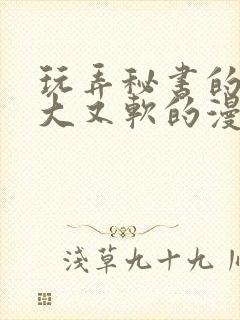 玩弄秘书的
大又软的漫
浅草九十九